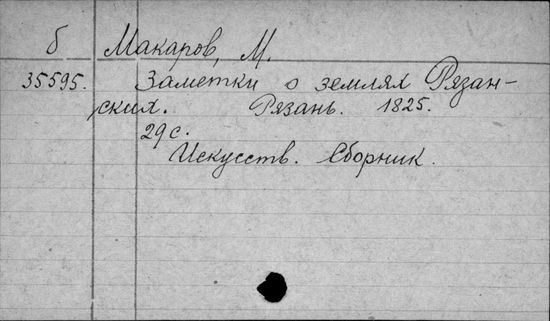 б Макаров, М.
35595. Заметки о землях Рязан-
ских. Рязань. 1825.
29 с.
Искусств. Сборник.